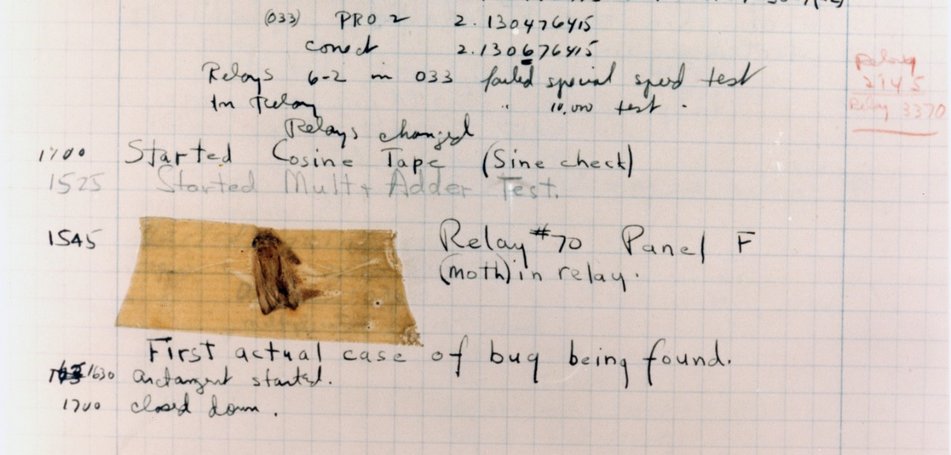 (033) PRO 2 2.130476415
conect 2.130676415
Relays 6-2 in 033 failed special speed test
In Relay " 10,000 test.
Relays changed
Relay
2145
Relay 3370
1700 Started Cosine Tape (Sine check)
1525 Started Mult+ Adder Test.
1545 Relay #70 Panel F
(moth) in relay.
First actual case of bug being found.
1630 arctangent started.
1700 closed down.